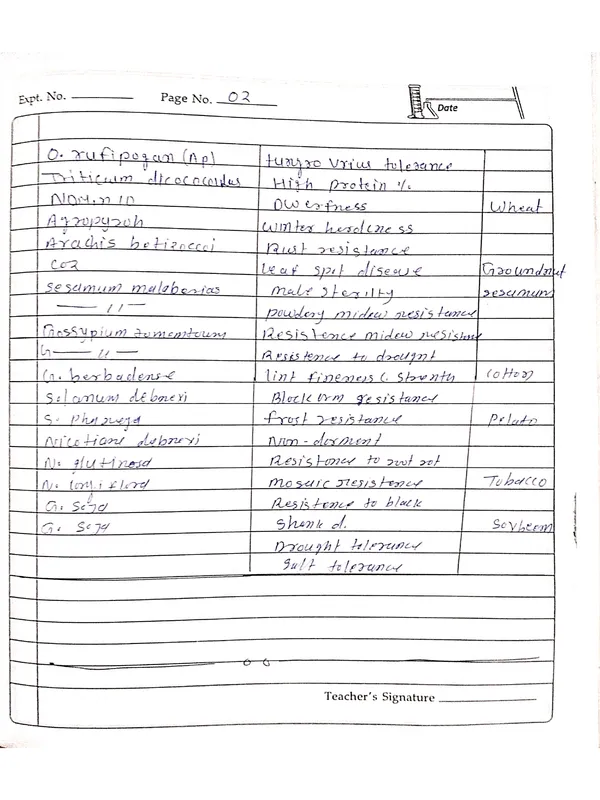 Expt. No. Page No. 02 Date
O. rufipogan (Ap) tungro Vrius tolerance
Triticum dicococoides High protein %
Dwerfness Wheat
Agropyron winter herdeness
Arachis Rust resistance
CO2 Leaf spot disease Groundnut
Sesamum malaberias Male sterilty sesamum
— 11 — powdery midew resistance
Gossypium Resistence midew resistance
G — 11 — Resistence to drought
G. berbadense lint fineness & Strenth Cotton
Solanum debneri resistance
S. Phureja frost resistance Potato
Nicotiane debneri Non-dorment
N. glutinosa Resistance to root rot
N. longiflora Mosaic Resistence Tobacco
G. Soja Resistence to black
G. Soja Shank d. Soybeem
Drought tolerance
Salt tolerance
Teacher's Signature